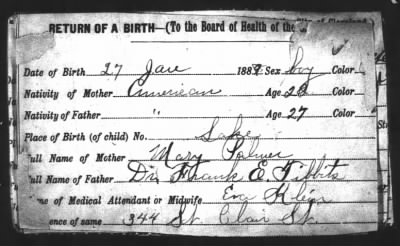 RETURN OF A BIRTH—(To the Board of Health of the
Date of Birth 27 Jane 1889 Sex boy Color
Nativity of Mother American Age 28 Color
Nativity of Father " Age 27 Color
Place of Birth (of child) No.
ull Name of Mother Mary Palmer
ull Name of Father Dr. Frank E. Tibbits
me of Medical Attendant or Midwife Eva Klein
ence of same 344 St. Clair St.